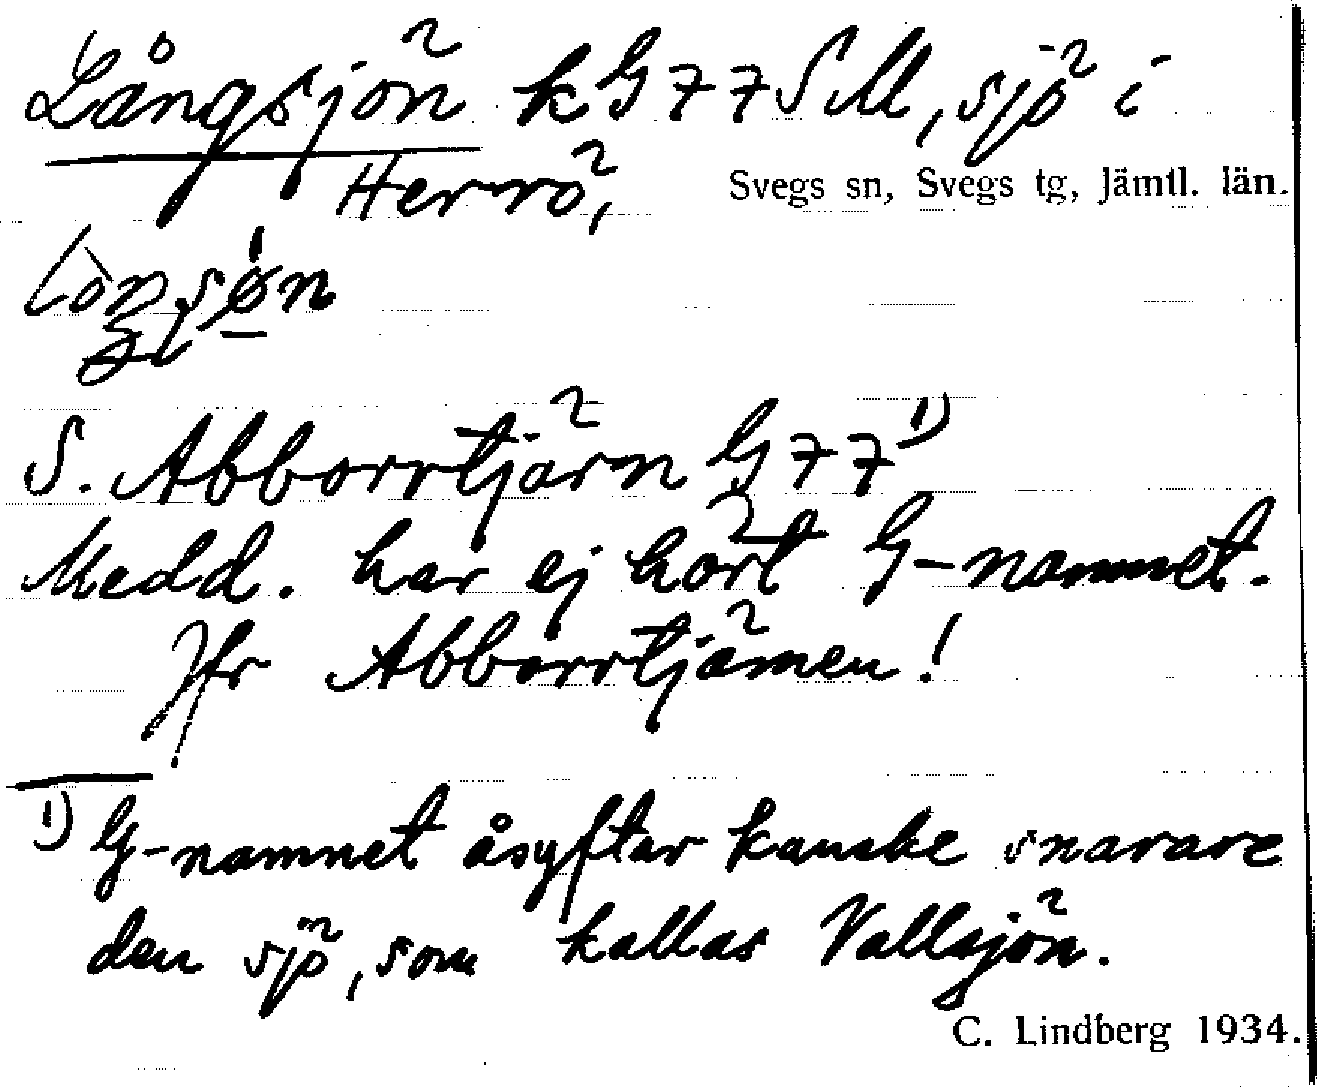 Långsjön k G 77 S M, sjö i
Herrö, Svegs sn, Svegs tg, Jämtl. län.
S. Abborrtjärn G 77 1)
Medd. har ej hört G-namnet.
Jfr Abborrtjärnen!
1) G-namnet åsyftar kanske snarare
den sjö, som kallas Vallsjön.
C. Lindberg 1934.